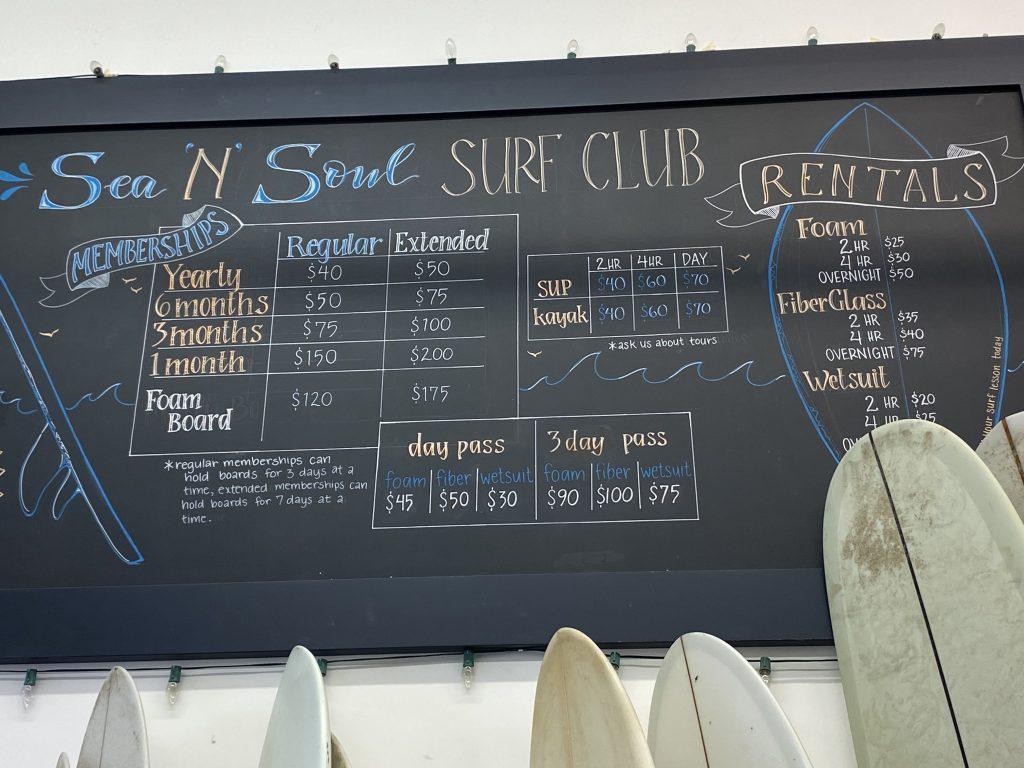 Sea 'N' Soul SURF CLUB
MEMBERSHIPS
Regular Extended
Yearly $40 $50
6 months $50 $75
3 months $75 $100
1 month $150 $200
Foam Board $120 $175
*regular memberships can
hold boards for 3 days at a
time, extended memberships can
hold boards for 7 days at a
time.
2HR 4HR DAY
SUP $40 $60 $70
kayak $40 $60 $70
*ask us about tours
day pass
foam fiber wetsuit
$45 $50 $30
3 day pass
foam fiber wetsuit
$90 $100 $75
RENTALS
Foam
2 HR $25
4 HR $30
OVERNIGHT $50
FiberGlass
2 HR $35
4 HR $40
OVERNIGHT $75
Wetsuit
2 HR $20
4 HR $25
your surf lesson today